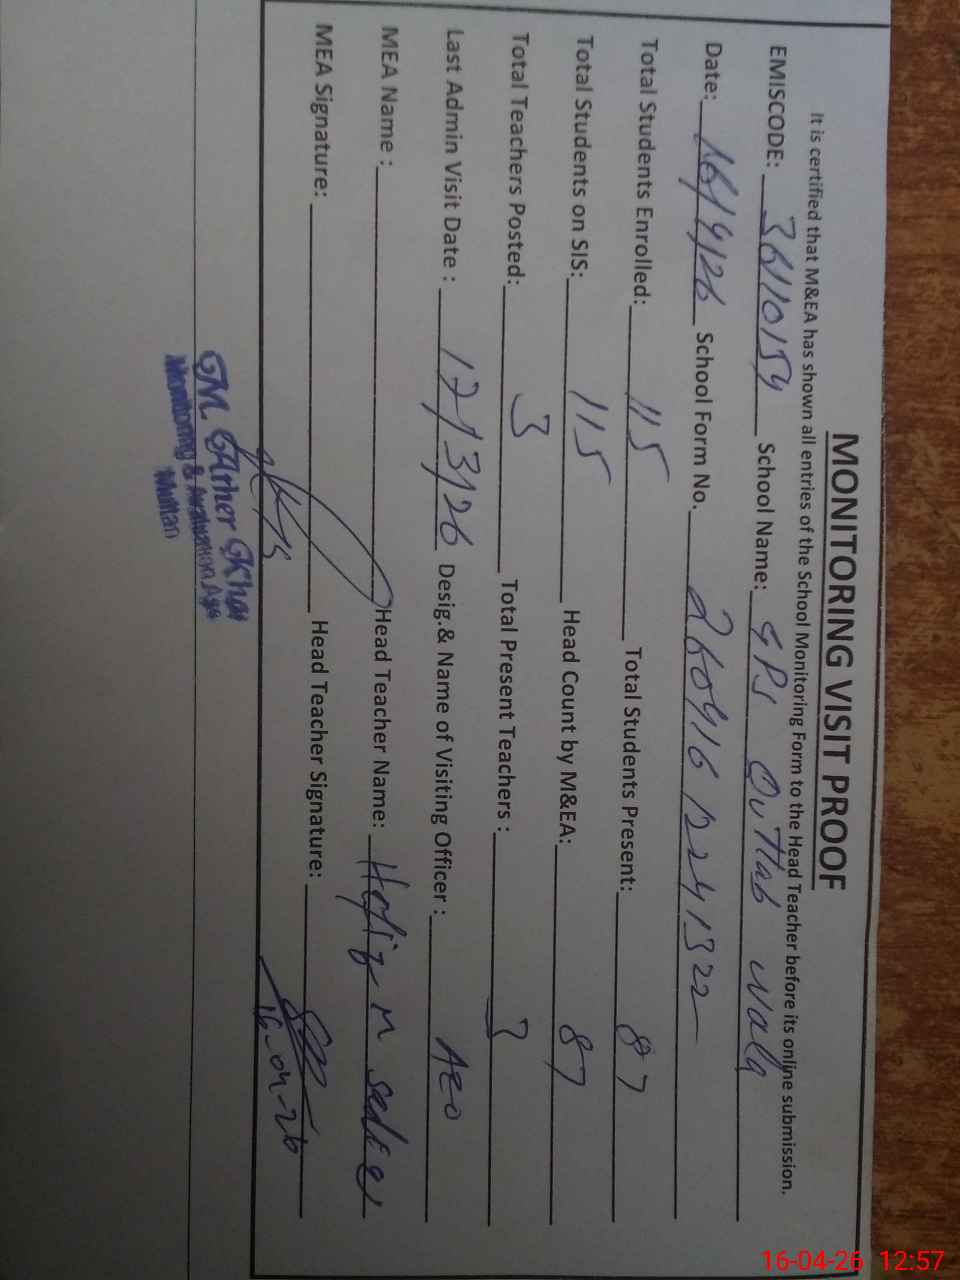 MONITORING VISIT PROOF
It is certified that M&EA has shown all entries of the School Monitoring Form to the Head Teacher before its online submission.
EMISCODE: 36110154 School Name: GPS Quttab wala
Date: 16/4/26 School Form No. 26041612241322
Total Students Enrolled: 115 Total Students Present: 87
Total Students on SIS: 115 Head Count by M&EA: 87
Total Teachers Posted: 3 Total Present Teachers : 3
Last Admin Visit Date : 17/3/26 Desig.& Name of Visiting Officer : AEO
MEA Name : Head Teacher Name: Hafiz M
MEA Signature: Head Teacher Signature:
16-04-26
M. Ather Khan
Monitoring & Evaluation
Multan
16-04-26 12:57